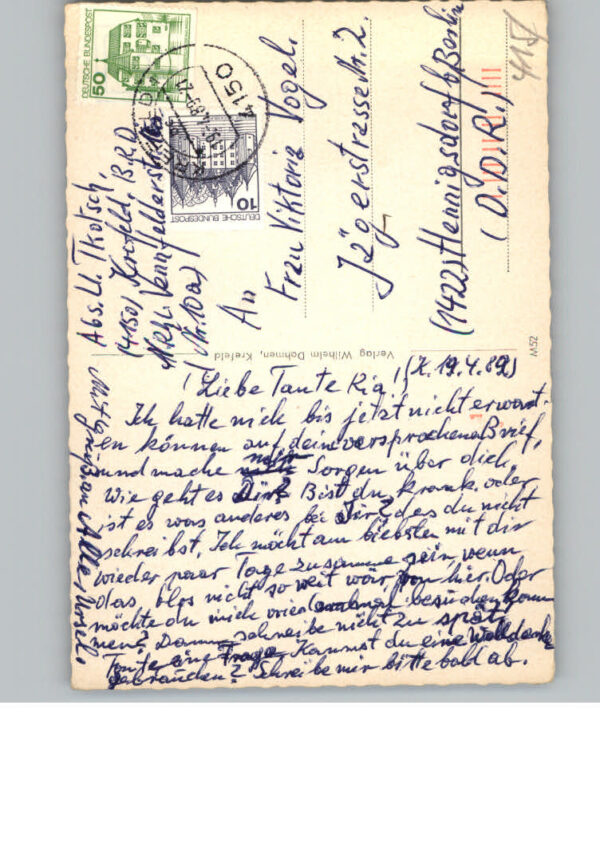 DEUTSCHE BUNDESPOST
50
DEUTSCHE BUNDESPOST
10
4150
KREFELD
19.-4.89-21
4151
Abs. U. Tkotsch,
(4150) Krefeld, B.R.D.
(Nr. 10a)
An
Frau Viktoria Vogel.
Jägerstrasse Nr. 2.
(1422) Hennigsdorf b/Berlin
(D.D.R.)
Verlag Wilhelm Dohmen, Krefeld
M52
(K. 19.4.89.)
! Liebe Tante Ria !
Ich hatte mich bis jetzt nicht erwart-
en können auf dein versprochenen Brief,
und mache mir Sorgen über dich.
Wie geht es Dir? Bist du krank oder
ist es was anderes bei Dir? das du nicht
schreibst. Ich möcht am liebsten mit dir
wieder paar Tage zusamme sein, wenn
das blos nicht so weit war von hier. Oder
möchte du mich besuchen komm
men? Dann schreibe nicht zu spät.
Tante eine Frage Kannst du eine Wolldecke
gebrauchen? Schreibe mir bitte bald ab.
Mit grüßen Alle, Ursel.